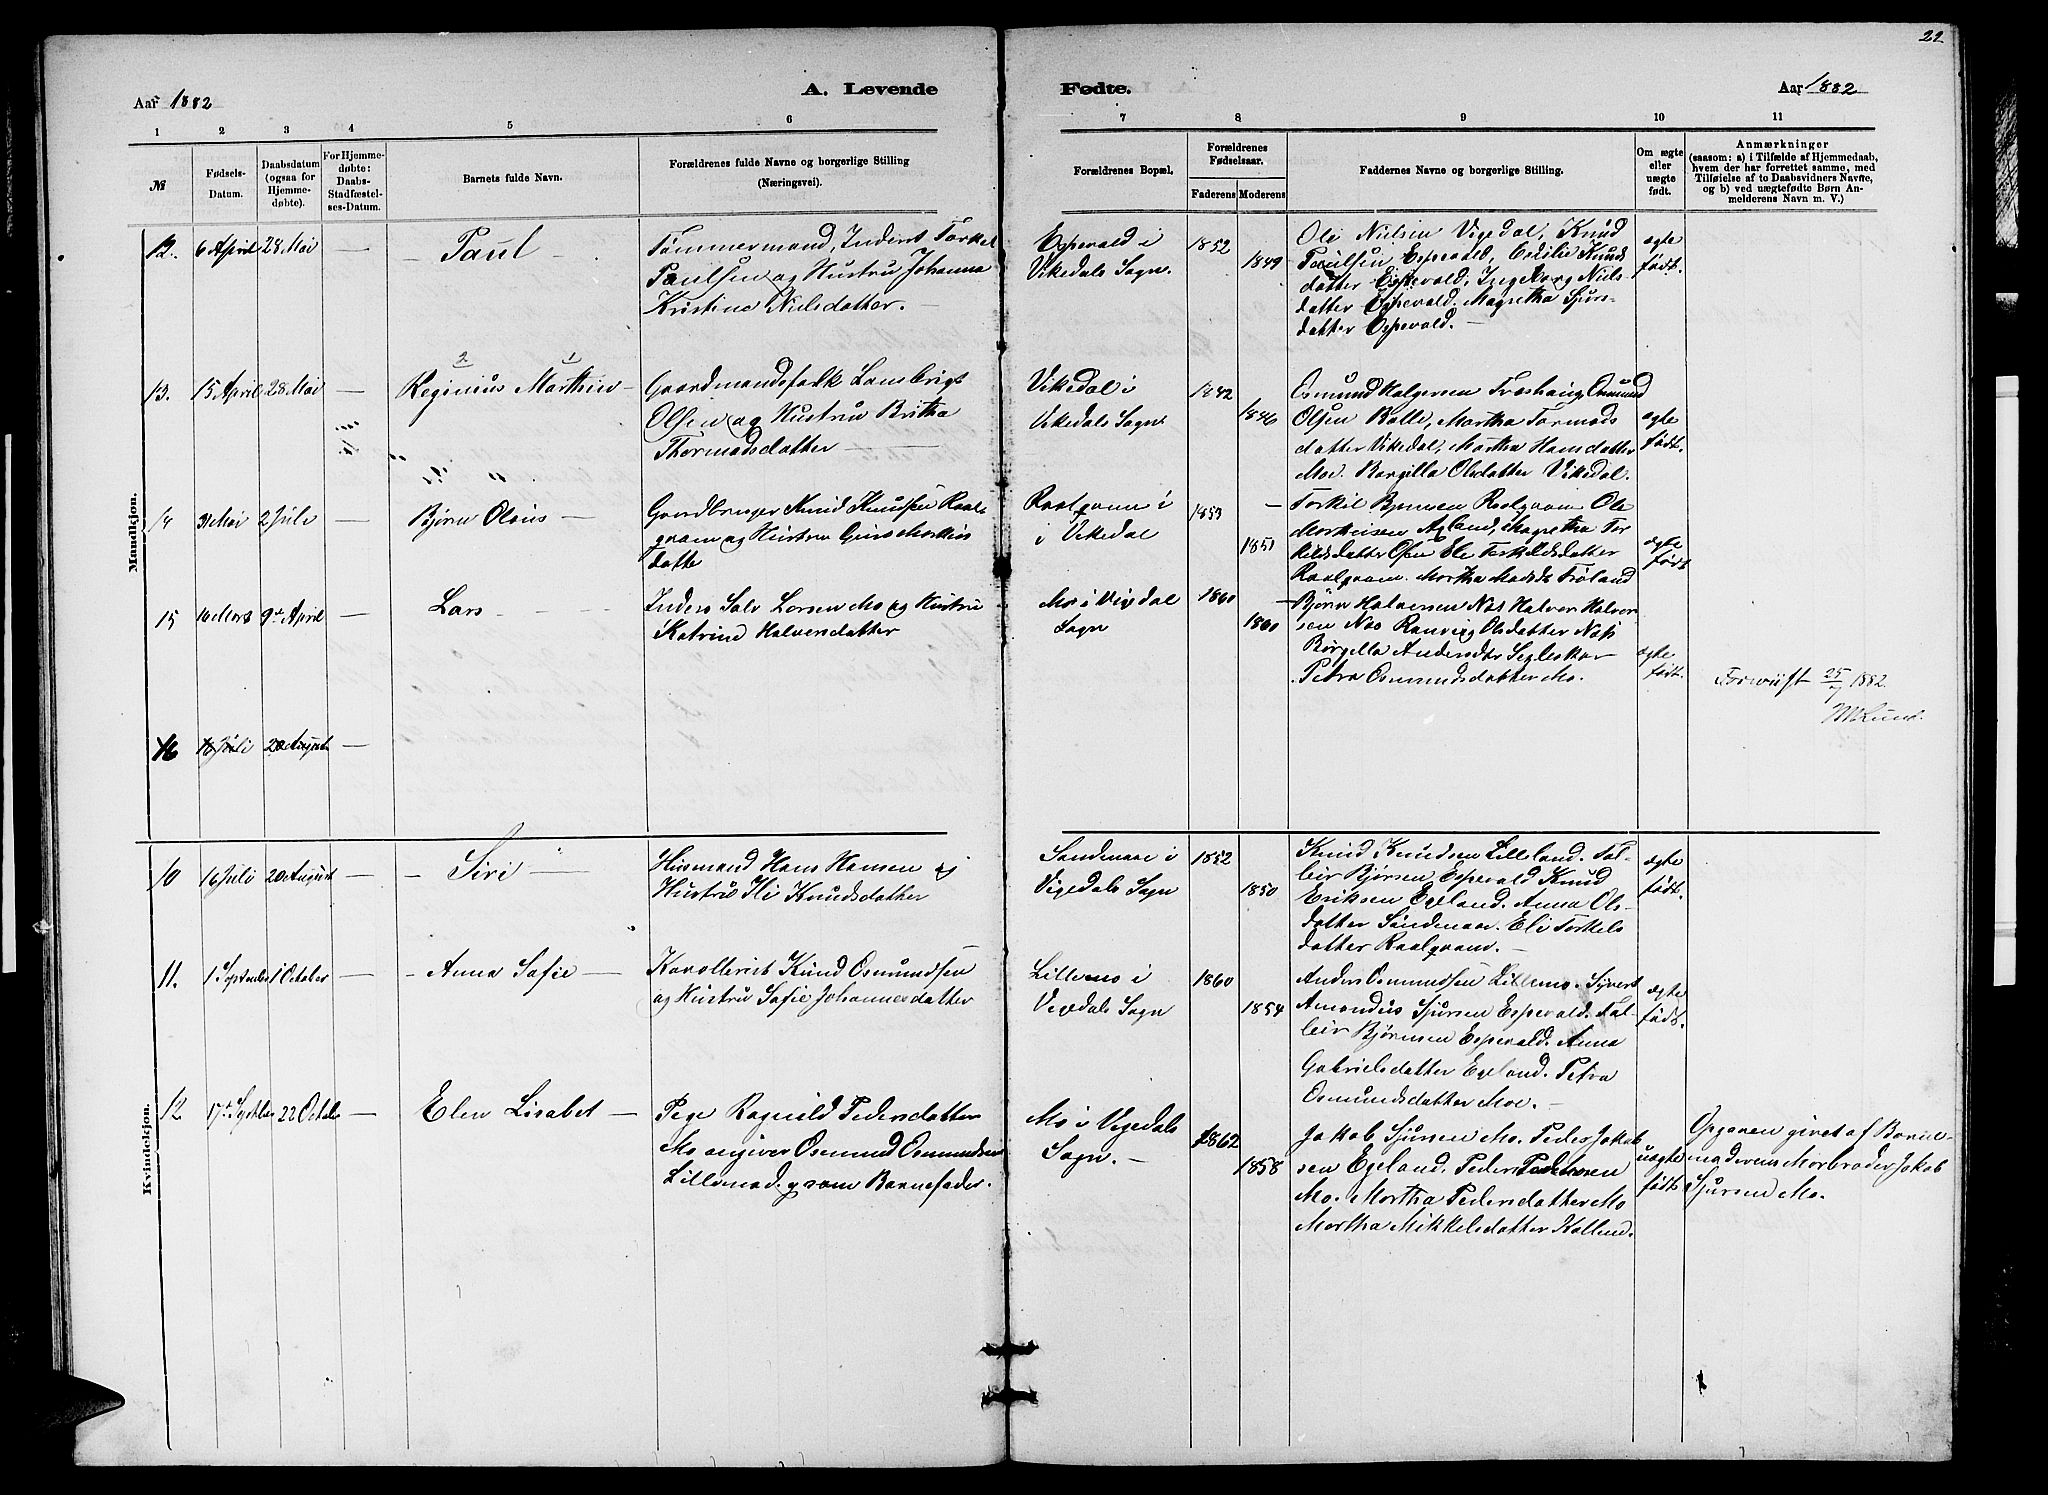 22
Aar 1882
A. Levende
Fødte.
Aar 1882
1 2 3 4 5 6 7 8 9 10 11
№
Fødsels-
Datum.
Daabsdatum
(ogsaa for
Hjemme-
døbte).
For Hjemme-
døbte:
Daabs-
Stadfæstel-
ses-Datum.
Barnets fulde Navn.
Forældrenes fulde Navne og borgerlige Stilling
(Næringsvei).
Forældrenes Bopæl.
Forældrenes
Fødselsaar.
Faderens Moderens
Faddernes Navne og borgerlige Stilling.
Om ægte
eller
uægte
født.
Anmærkninger
(saasom: a) i Tilfælde af Hjemmedaab,
hvem der har forrettet samme, med
Tilføielse af to Daabsvidners Navne,
og b) ved uægtefødte Børn An-
melderens Navn m. V.)
Mandkjøn.
12. 6 April 28 Mai — Paul
Tømmermand, Inderst Torkel
Paulsen og Hustru Johanna
Kristine Nielsdatter. —
Espevold i
Vikedals Sogn.
1852
1849
Ole Nielsen Vigedal, Knud
Paulsen Espevold, Cecilie Knuds
datter Espevold, Ingeborg Niels-
datter Espevold. Magretha Sjurs-
datter Espevold. —
ægte
født.
13. 15 April 28 Mai — Reginius Marthin —
2 1
Gaardmandsfolk Lambrigt
Olsen og Hustru Britha
Thormodsdatter —
Vikedal i
Vikedals Sogn
1842
1846
Osmund Halgersen Træshaug Osmund
Olsen Balle, Martha Tormods
datter Vikedal, Martha Hansdatter
Moe. Borgilla Olsdatter Vikedal.
ægte
født.
14 31 Mai 2 Juli — Bjørn Olaus —
Gaardbruger Knud Knudsen Raal-
gvam og Hustru Guro Morkis
datte
Raalgvam i
i Vikedal
1853
1851
Torkil Bjørnsen Raalgvam Ole
Morkeisen Aaland, Magretha Tor
kildsdatter Ofsen Ele Torkildsdatter
Raalgvam. Mortha Madsdr Frøland
ægte
født
15 10 Mors 9de April — Lars
Inders Salv Lorsen Mo og Hustru
Katrine Halversdatter
Mo i Vigdal
Sogn
1860
1860
Bjørn Halversen Nos Halver Halver
sen Nos Ranveig Olsdatter Nøs
Børgilla Andersdtr Segleskar
Petra Osmundsdatter Mo.
ægte
født.
Forevist 25/7 1882.
Lund.
16 16 Juli 20 August —
Kvindekjøn.
10 16 Juli 20 August — Siri —
Husmand Hans Hansen og
Hustru Ili Knudsdatter
Søndenaae i
Vigedals Sogn
1852
1850
Knud Knudsen Lilleland. Tol-
leiv Bjørsen Espevold Knud
Eriksen Egeland. Anna Ols-
datter Søndenaae. Eli Torkels
datter Raalgvam. —
ægte
født.
11. 1 September 1 October — Anna Sofie —
Kavallerist Knud Osmundsen
og Hustru Sofie Johannesdatter
Lillemo i
Vigedals Sogn
1860
1854
Anders Osmundsen Lillemo. Syvert
Amondus Sjursen Espevold. Tol-
leiv Bjørnsen Espevold. Anna
Gabrielsdatter Egeland. Petra
Osmundsdatter Moe. —
ægte
født.
12 17de Septber 22 Octobr — Elen Lisabet —
Pege Ragnild Pedersdatter
Mo angiver Osmund Osmundsen
Lillemo som Barnefader.
Mo i Vigedals
Sogn. —
1862
1858
Jakob Sjursen Mo. Peder Jakob
sen Egeland. Peder Pedersen
Mo. Mortha Pedersdatter Mo
Mortha Mikkelsdatter Kallund.
uægte
født
Opgaven givet af Barne-
moderens Morbroder Jakob
Sjursen Mo.